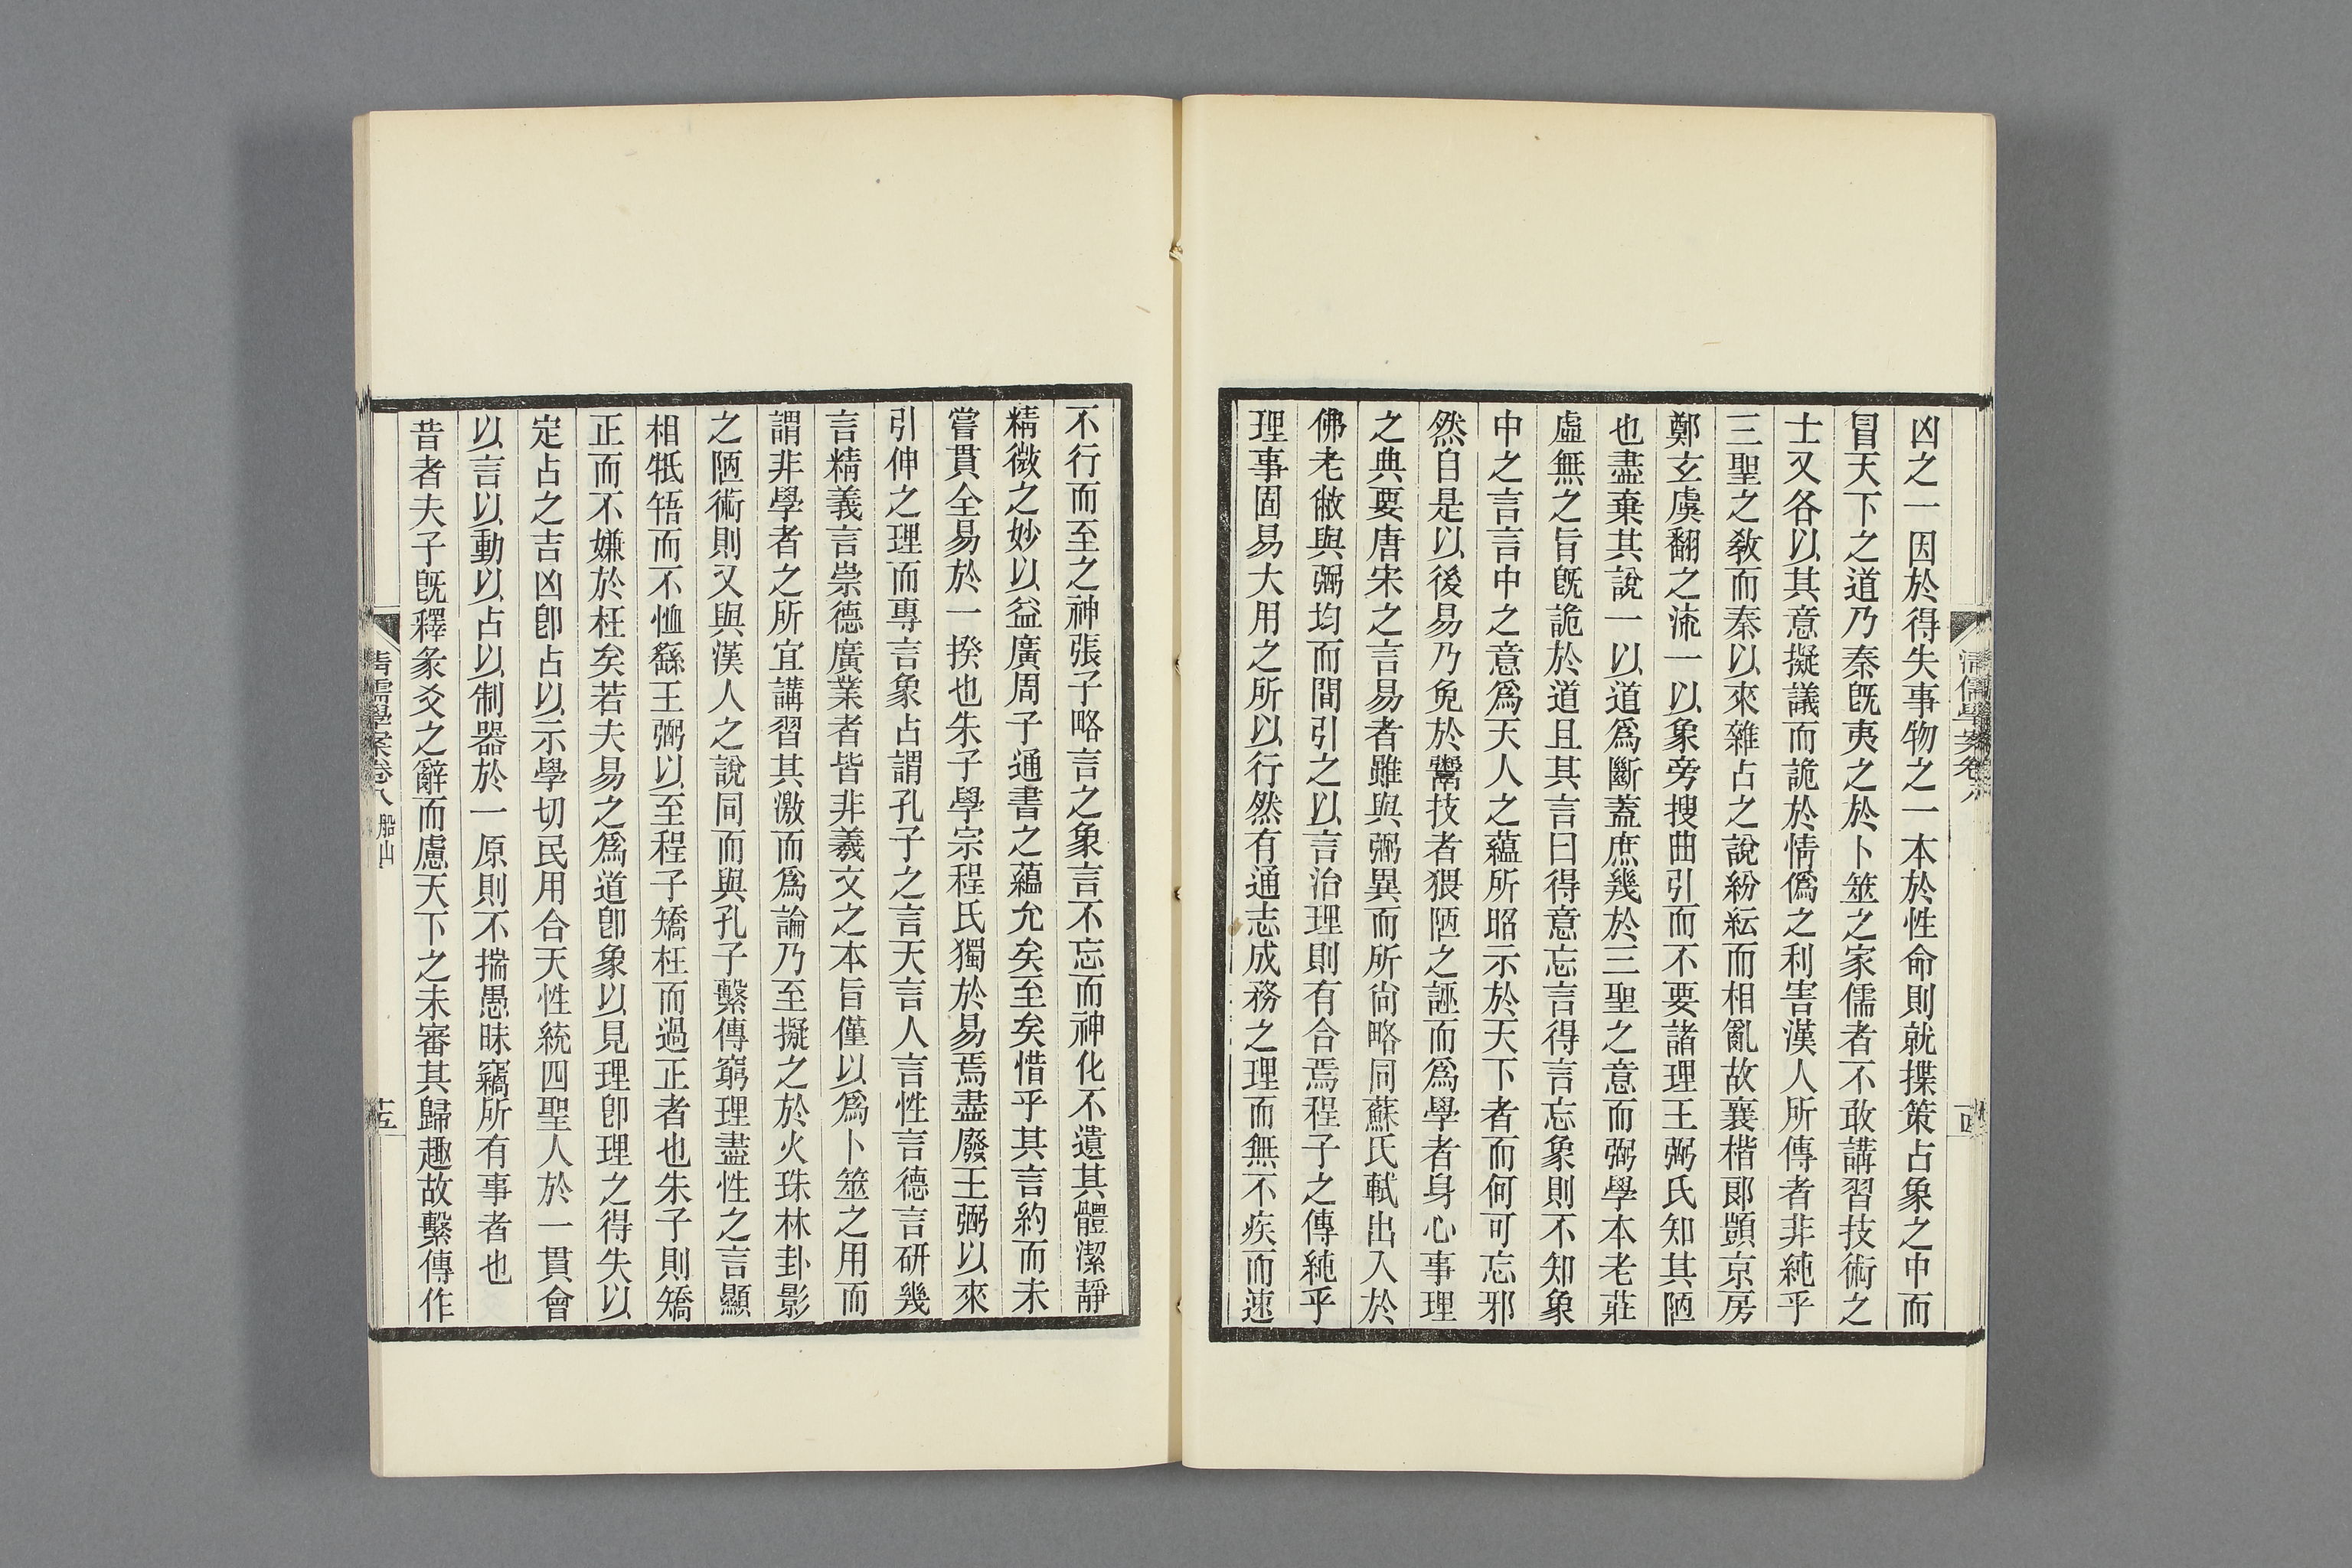 凶之一因於得失事物之一本於性命則就揲策占象之中而
冒天下之道乃秦旣夷之於卜筮之家儒者不敢講習技術之
士又各以其意擬議而詭於情僞之利害漢人所傳者非純乎
三聖之敎而秦以來雜占之說紛紜而相亂故襄楷郞顗京房
鄭玄虞翻之流一以象旁搜曲引而不要諸理王弼氏知其陋
也盡棄其說一以道爲斷蓋庶幾於三聖之意而弼學本老莊
虛無之旨旣詭於道且其言曰得意忘言得言忘象則不知象
中之言言中之意爲天人之蘊所昭示於天下者而何可忘邪
然自是以後易乃免於鬻技者猥陋之誣而爲學者身心事理
之典要唐宋之言易者雖與弼異而所尙略同蘇氏軾出入於
佛老敝與弼均而間引之以言治理則有合焉程子之傳純乎
理事固易大用之所以行然有通志成務之理而無不疾而速
清儒學案卷八
十四
不行而至之神張子略言之象言不忘而神化不遺其體潔靜
精微之妙以益廣周子通書之蘊允矣至矣惜乎其言約而未
嘗貫全易於一揆也朱子學宗程氏獨於易焉盡廢王弼以來
引伸之理而專言象占謂孔子之言天言人言性言德言硏幾
言精義言崇德廣業者皆非羲文之本旨僅以爲卜筮之用而
謂非學者之所宜講習其激而爲論乃至擬之於火珠林卦影
之陋術則又與漢人之說同而與孔子繫傳窮理盡性之言顯
相牴牾而不恤繇王弼以至程子矯枉而過正者也朱子則矯
正而不嫌於枉矣若夫易之爲道卽象以見理卽理之得失以
定占之吉凶卽占以示學切民用合天性統四聖人於一貫會
以言以動以占以制器於一原則不揣愚昧竊所有事者也
昔者夫子旣釋彖爻之辭而慮天下之未審其歸趣故繫傳作
清儒學案卷八 船山
十五